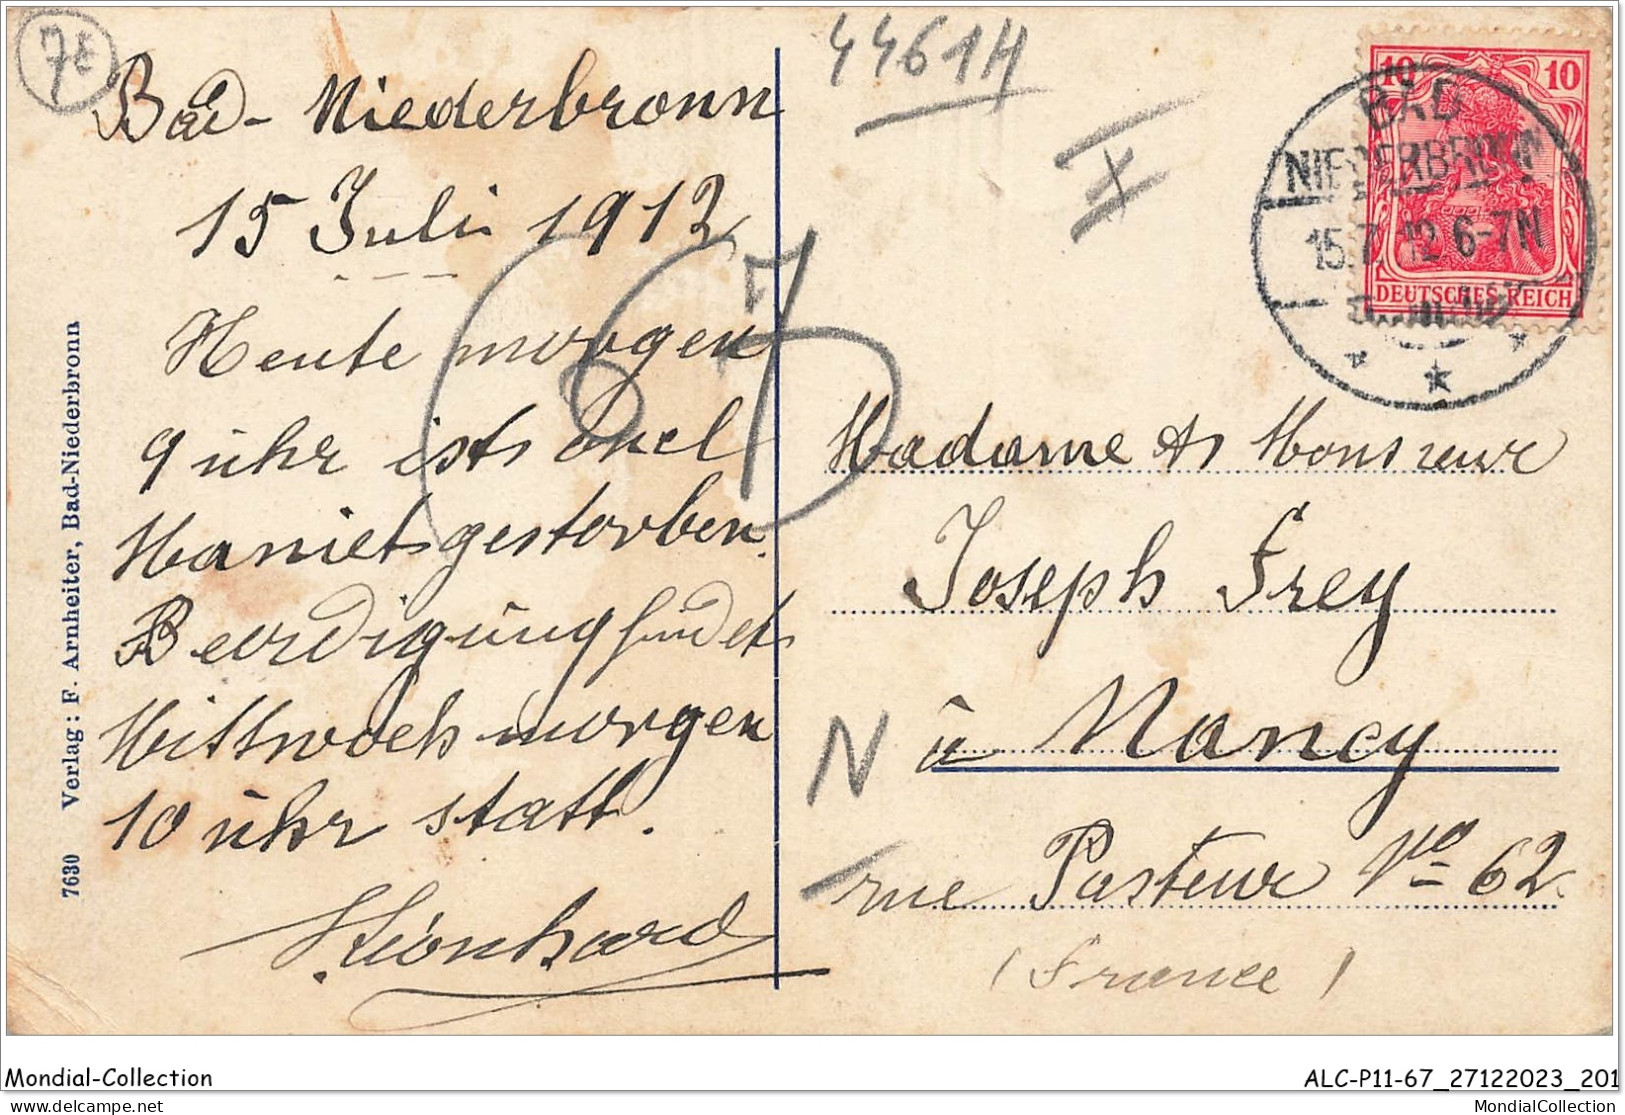 7€
Bad-Niederbronn
15 Juli 1912
Heute morgen
9 uhr ist onel
Haniet gestorben.
Beerdigung findet
Mittwoch morgen
10 uhr statt.
7630 Verlag: F. Arnheiter, Bad-Niederbronn
67
4461H
I
10 10
DEUTSCHES REICH
BAD
NIEDERBRONN
15.7.12 6-7N
Madame et Monsieur
Joseph Frey
N
à Nancy
rue Pasteur No 62.
(France)
Mondial-Collection
ALC-P11-67_27122023_201
www.delcampe.net
MondialCollection